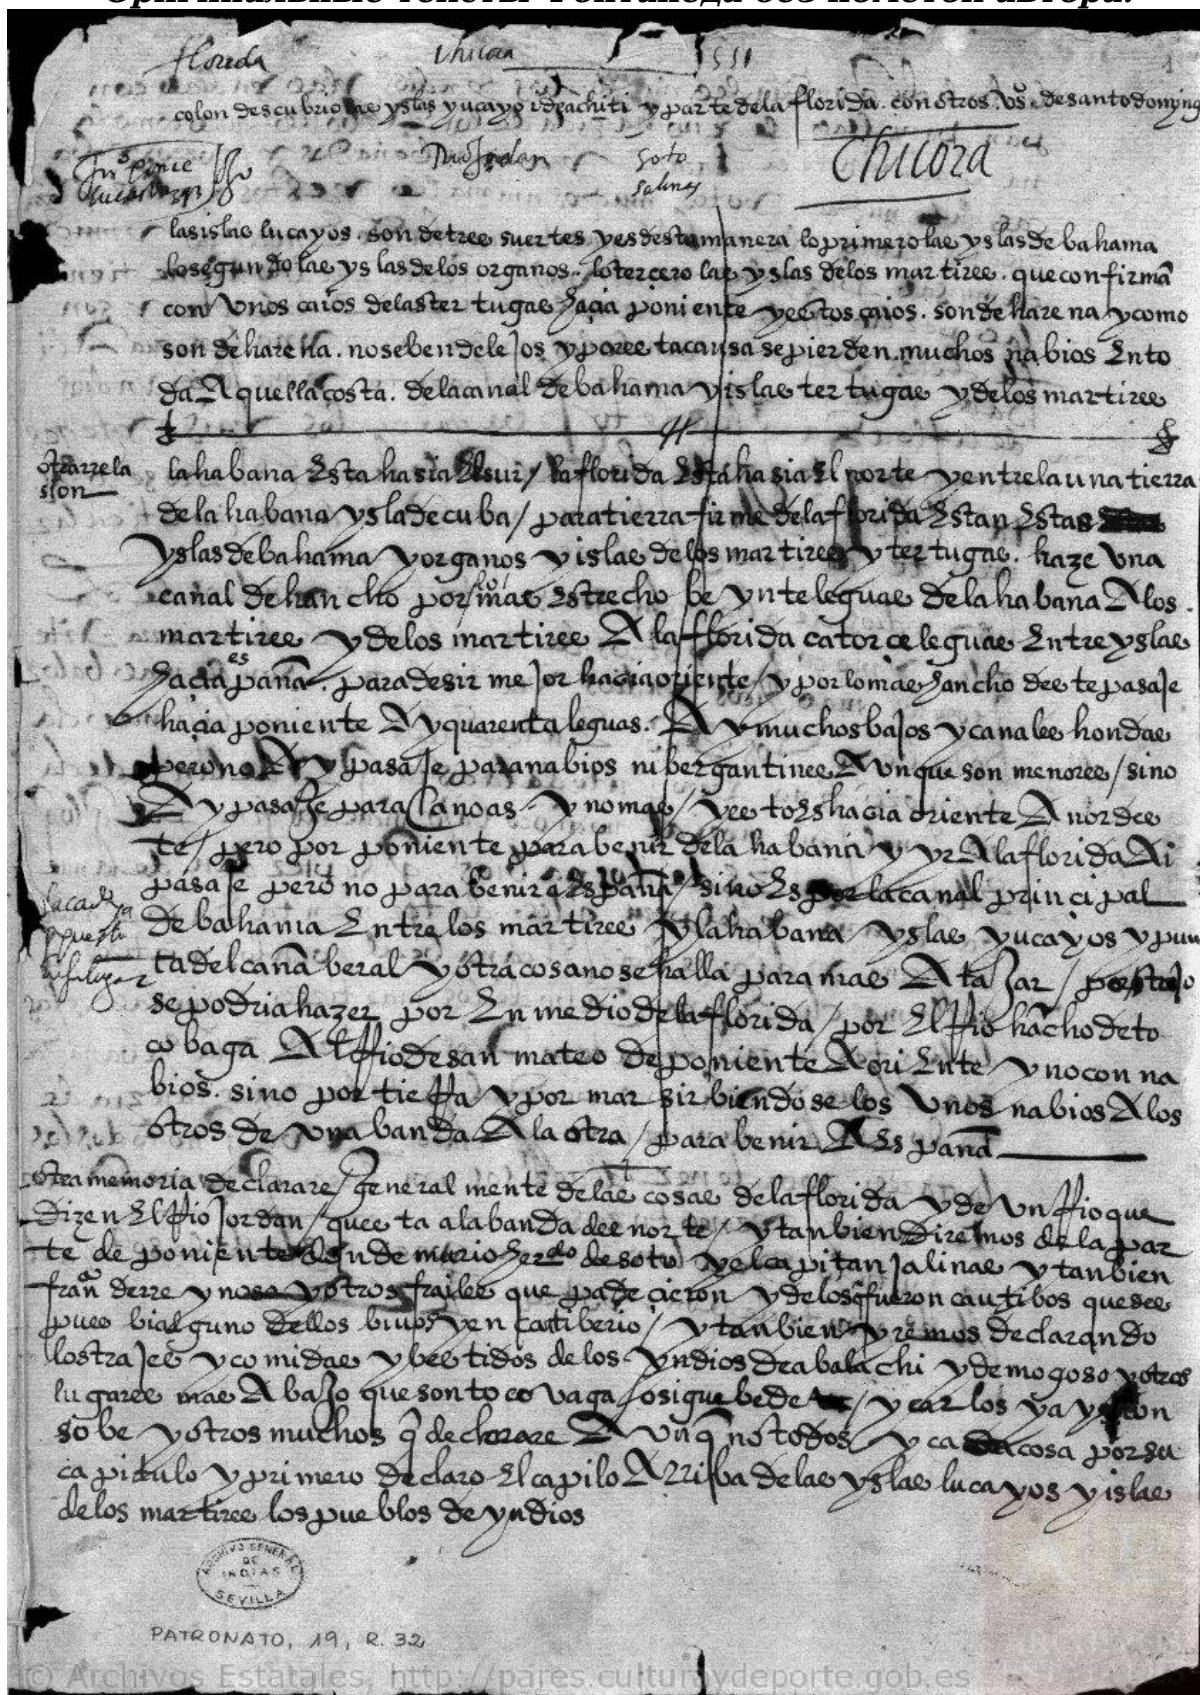 Оригинальные тексты Фонтанеда без пометок автора.
florida chicora 1551
colon descubrio las yslas yucayo y de achiti y parte de la florida con otros v.os de santo doming
Ju.o Ponce Rio Jordan soto Chicora
salinas
las islas lucayos son de tres suertes y es desta manera lo primero las yslas de bahama
lo segundo las yslas de los organos. lo tercero las yslas de los martires. que confirmã
con unos caios de las tertugas hacia poniente y estos caios. son de harena y como
son de harena. no se ben de lejos y por esta causa se pierden muchos nabios En to
da Aquella costa. de la canal de bahama y islas tertugas y de los martires
otra rrela
sion
la habana Esta hasia El sur / la florida Esta hasia El norte y entre la una tierra
de la habana ysla de cuba / para tierra firme de la florida Estan Estas
yslas de bahama y organos y islas de los martires y tertugas. haze una
canal de hancho por lo mas Estrecho beynte leguas de la habana A los
martires y de los martires A la florida catorce leguas Entre yslas
hacia españa. para desir mejor hacia oriente / y por lo mas hancho deste pasaje
hacia poniente Ay quarenta leguas. Ay muchos bajos y canales hondas
pero no Ay pasaje para nabios ni bergantines Aunque son menores / sino
Ay pasaje para Canoas y no mas / y esto Es hacia oriente A nordes
te / pero por poniente para benir de la habana y yr A la florida Ai
pasaje pero no para benir a España / sino Es por la canal principal
de bahama Entre los martires y la habana y yslas yucayos y pun
ta del cañaberal y otra cosa no se halla para mas Atajar /
se podria hazer por En medio de la florida / por El Rio hãcho de to
cobaga Al Rio de san mateo de poniente A oriEnte y no con na
bios. sino por tieRa y por mar sirbiendose los unos nabios A los
otros de una banda A la otra / para benir A España
otra memoria declarare / general mente de las cosas de la florida y de un Rio que
dizen El Rio Jordan / questa a la banda del norte / y tanbien diremos de la par
te de poniente herdo de soto y el capitan salinas y tanbien
frãn derreynoso y otros frailes que padecieron y de los q fueron cautibos que des
pues bi alguno dellos bivos y en cautiberio / y tanbien yremos declarando
los trajes y comidas y bestidos de los yndios de abalachi y de mogoso y otros
lugares mas Abajo que son tocovaga / osiguebede / y carlos ya ys con
sobe y otros muchos q declarare Aunq no todos y cada cosa por su
capitulo y primero declaro El capilo Arriba de las yslas lucayos y islas
de los martires los pueblos de yndios
ARCHIVO GENERAL
DE
INDIAS
SEVILLA
PATRONATO, 19, R. 32
© Archivos Estatales, http://pares.culturaydeporte.gob.es